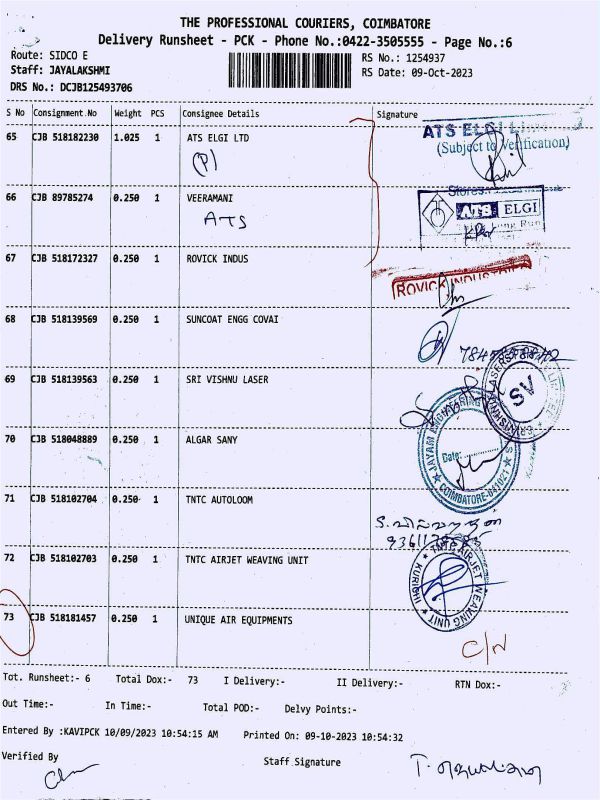 THE PROFESSIONAL COURIERS, COIMBATORE
Delivery Runsheet - PCK - Phone No.:0422-3505555 - Page No.:6
Route: SIDCO E
RS No.: 1254937
Staff: JAYALAKSHMI
RS Date: 09-Oct-2023
DRS No.: DCJB125493706
S No Consignment.No Weight PCS Consignee Details Signature
65 CJB 518182230 1.025 1 ATS ELGI LTD
(P)
ATS ELGI
(Subject to Verification)
66 CJB 89785274 0.250 1 VEERAMANI
ATS
Stores
ATS ELGI
67 CJB 518172327 0.250 1 ROVICK INDUS
ROVICK INDUSTRIES
68 CJB 518139569 0.250 1 SUNCOAT ENGG COVAI
69 CJB 518139563 0.250 1 SRI VISHNU LASER
SV
70 CJB 518048889 0.250 1 ALGAR SANY
JAYAM ENGINEERING
Date:
COIMBATORE-641021
71 CJB 518102704 0.250 1 TNTC AUTOLOOM
72 CJB 518102703 0.250 1 TNTC AIRJET WEAVING UNIT
TNTC AIRJET WEAVING UNIT
KURICHI
73 CJB 518181457 0.250 1 UNIQUE AIR EQUIPMENTS
C/N
Tot. Runsheet:- 6 Total Dox:- 73 I Delivery:- II Delivery:- RTN Dox:-
Out Time:- In Time:- Total POD:- Delvy Points:-
Entered By :KAVIPCK 10/09/2023 10:54:15 AM Printed On: 09-10-2023 10:54:32
Verified By
Staff Signature